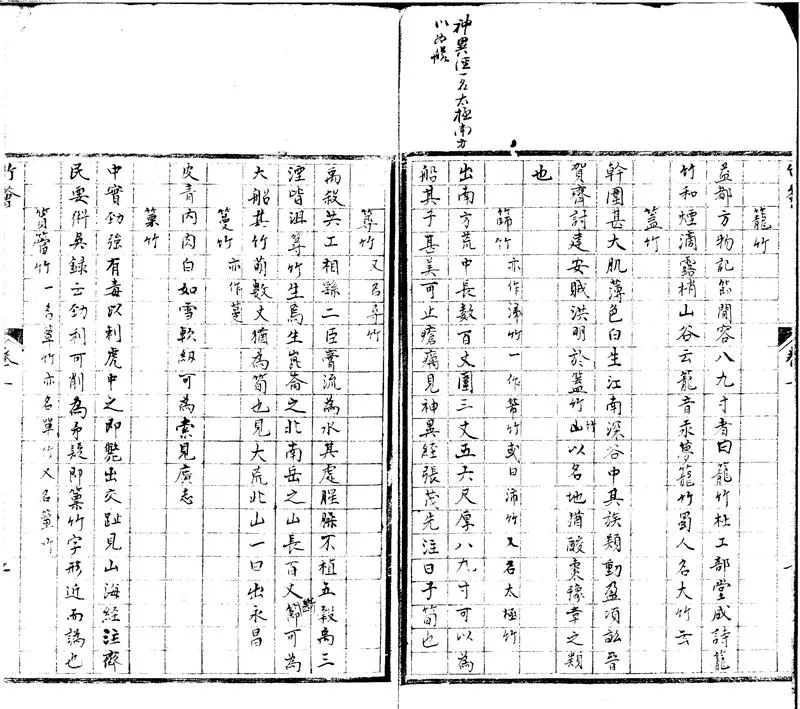 神異經一名太極南方
以為船
籠竹
益都方物記節間容八九寸者曰籠竹杜工部堂成詩籠
竹和煙滴露梢山谷云籠音永夢籠竹蜀人名大竹云
蓋竹
幹圍甚大肌薄色白生江南深谷中其族類動盈頃畝晉
賀齊討建安賊洪明於蓋竹山以名地猶酸棗豫章之類
也
篩竹亦作沛竹一作竹或曰沛竹又名太極竹
出南方荒中長數百丈圍三丈五六尺厚八九寸可以為
船其子甚美可止瘡癘見神異經張茂先注曰子筍也
蕁竹又名尋竹
禹殺共工相繇二臣膏流為水其處腥臊不植五穀禹三
湮皆沮蕁竹生焉生崑崙之北南岳之山長百丈節可為
大船其竹萌數丈猶為筍也見大荒北山一曰出永昌
䈵竹亦作蔓
皮青內肉白如雪軟紉可為索見廣志
竹
中實勁強有毒以刺虎中之即斃出交趾見山海經注齊
民要術吳錄云勁利可削為矛疑即竹字形近而譌也
簹竹一名草竹亦名單竹又名竹
卷一